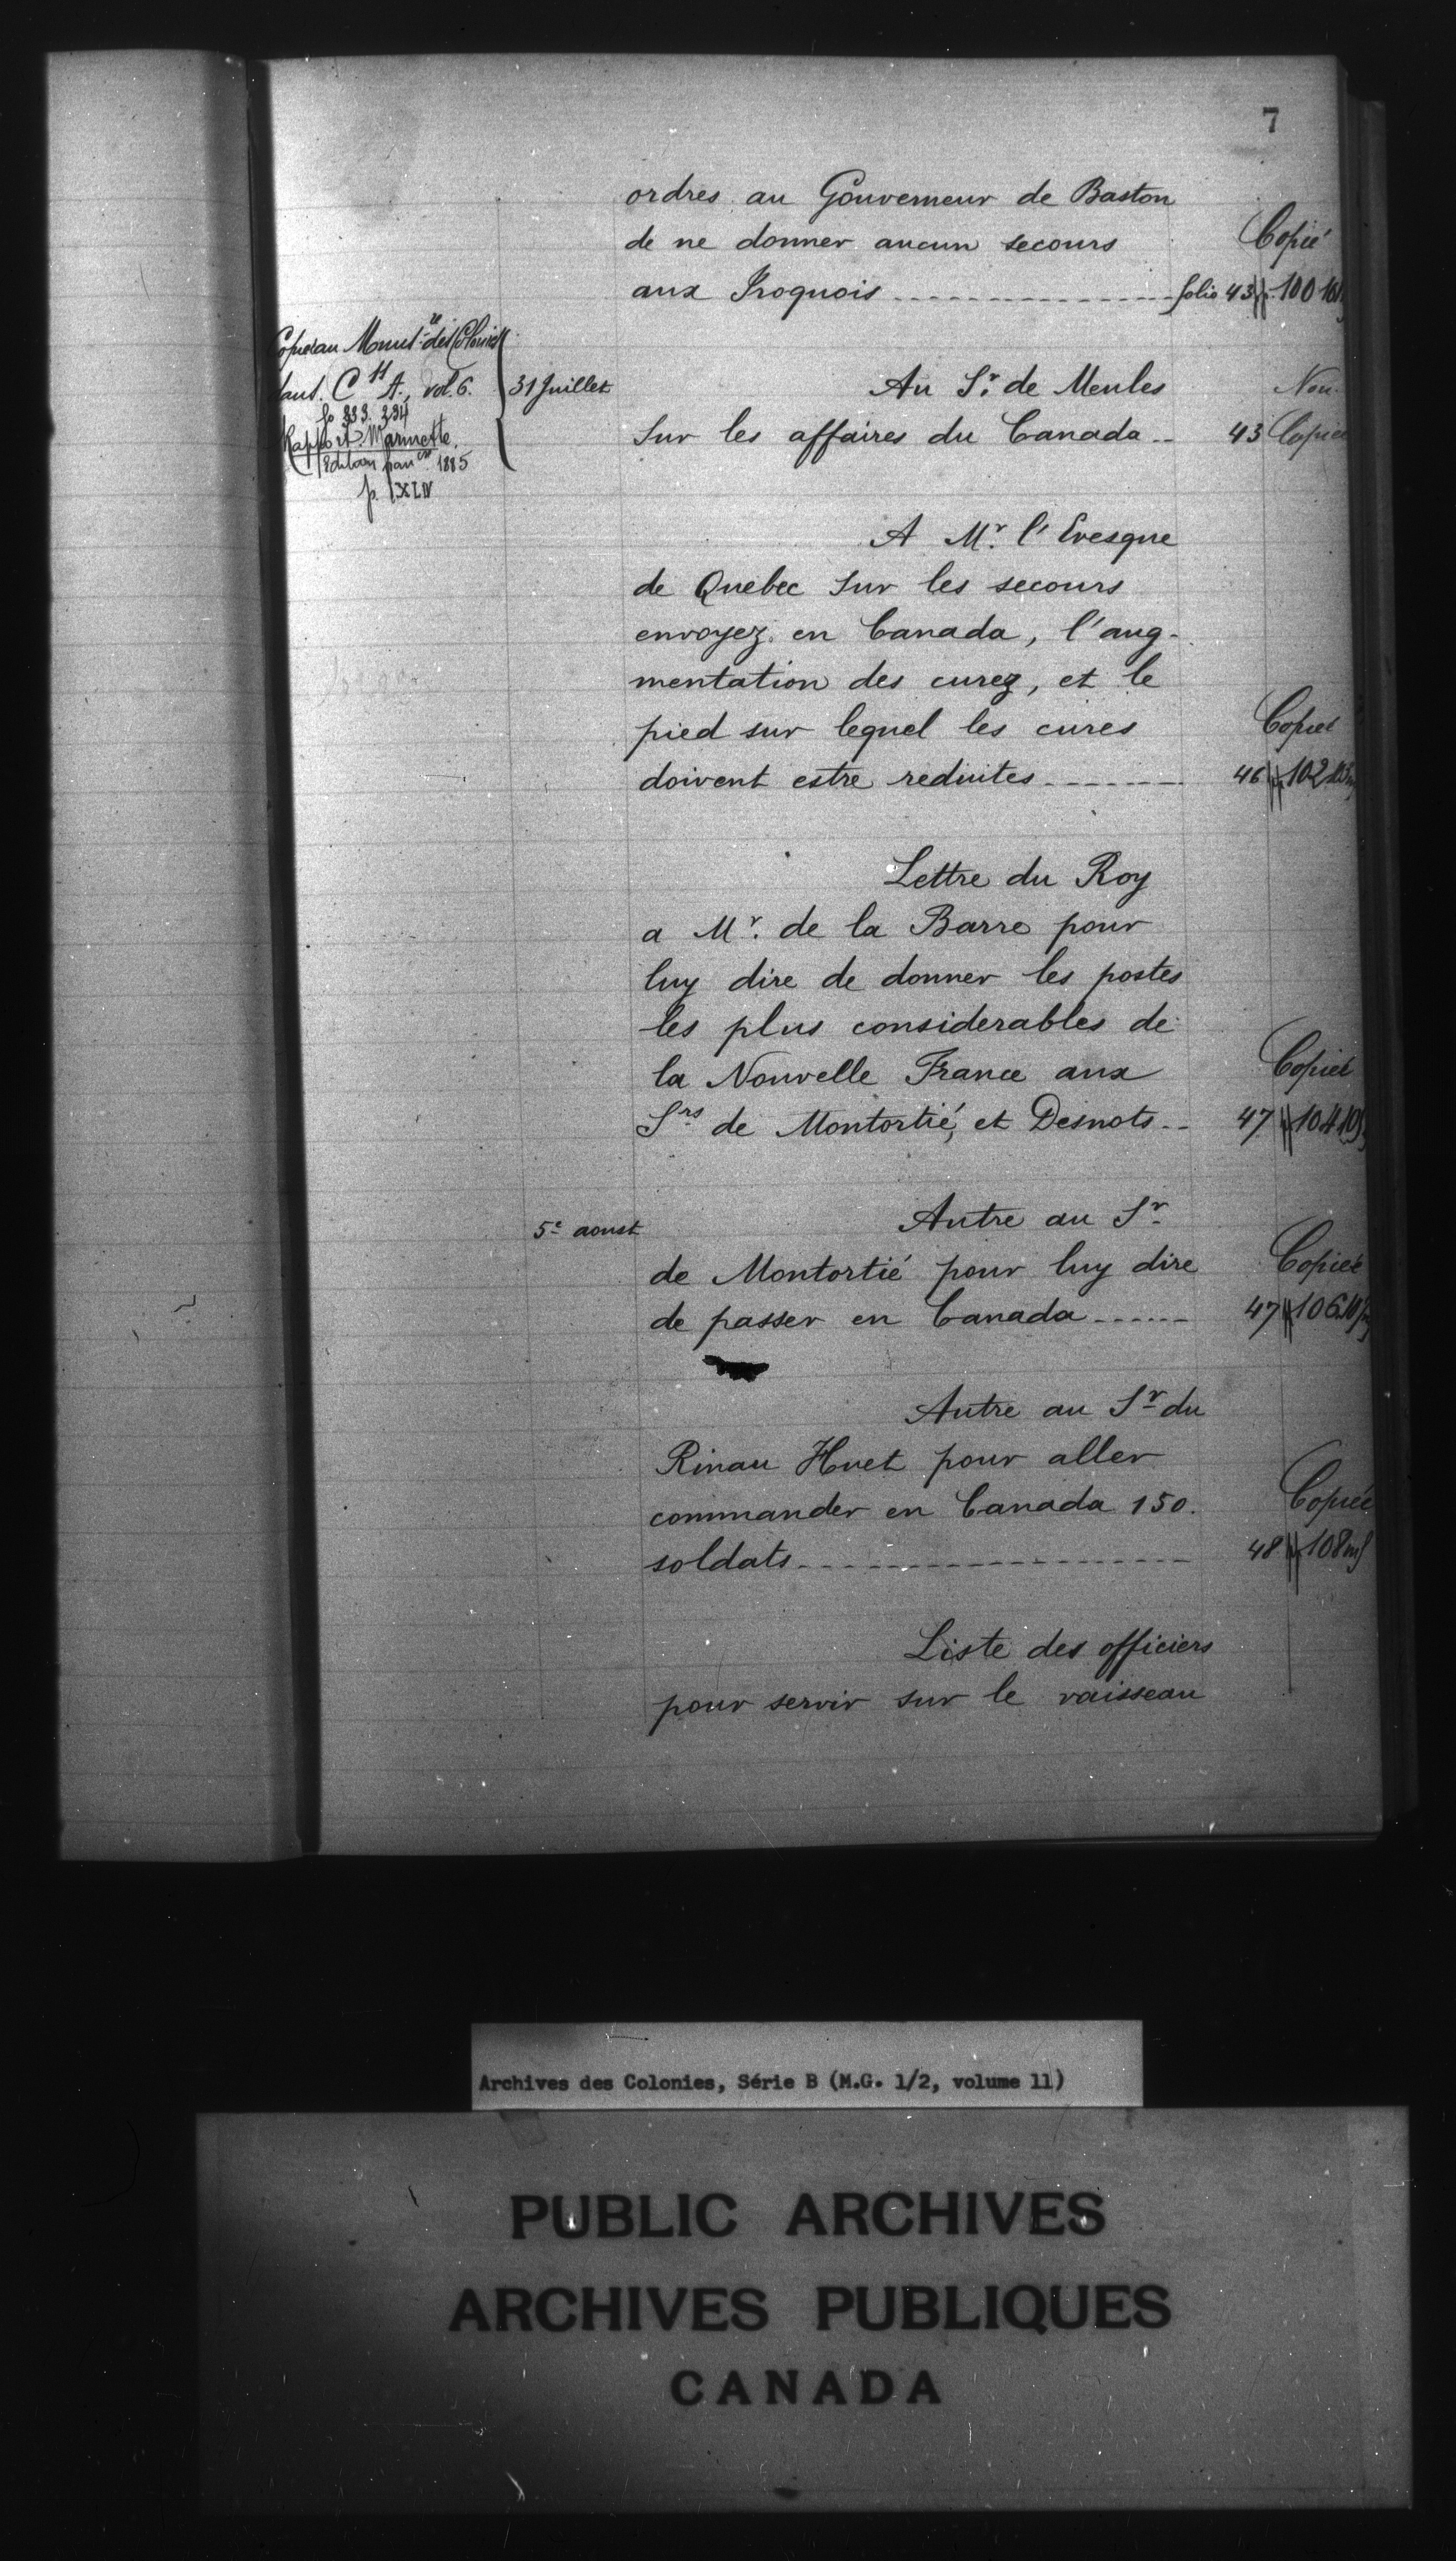 7
ordres au Gouverneur de Baston
de ne donner aucun secours Copié
aux Iroquois folio 43 p. 100
Copié au des Colonies
dans C 11 A, vol. 6. 31 Juillet Au Sr. de Meules Non
fo 333. 334
Rapport Marmette. Sur les affaires du Canada 43 Copiée
Edition 1885
p. LXLIV
A Mr. l'Evesque
de Quebec Sur les secours
envoyez en Canada, l'aug-
mentation des curez, et le
pied sur lequel les cures Copiée
doivent estre reduites 46 pp 102
Lettre du Roy
a Mr. de la Barre pour
luy dire de donner les postes
les plus considerables de
la Nouvelle France aux Copiée
Srs de Montortié, et Desnots 47 pp 104 105
5e aoust Autre au Sr
de Montortié pour luy dire Copiée
de passer en Canada 47 pp 106.107
Autre au Sr du
Rinau Huet pour aller
commander en Canada 150. Copiée
soldats 48 pp 108
Liste des officiers
pour servir sur le vaisseau
Archives des Colonies, Série B (M.G. 1/2, volume 11)
PUBLIC ARCHIVES
ARCHIVES PUBLIQUES
CANADA